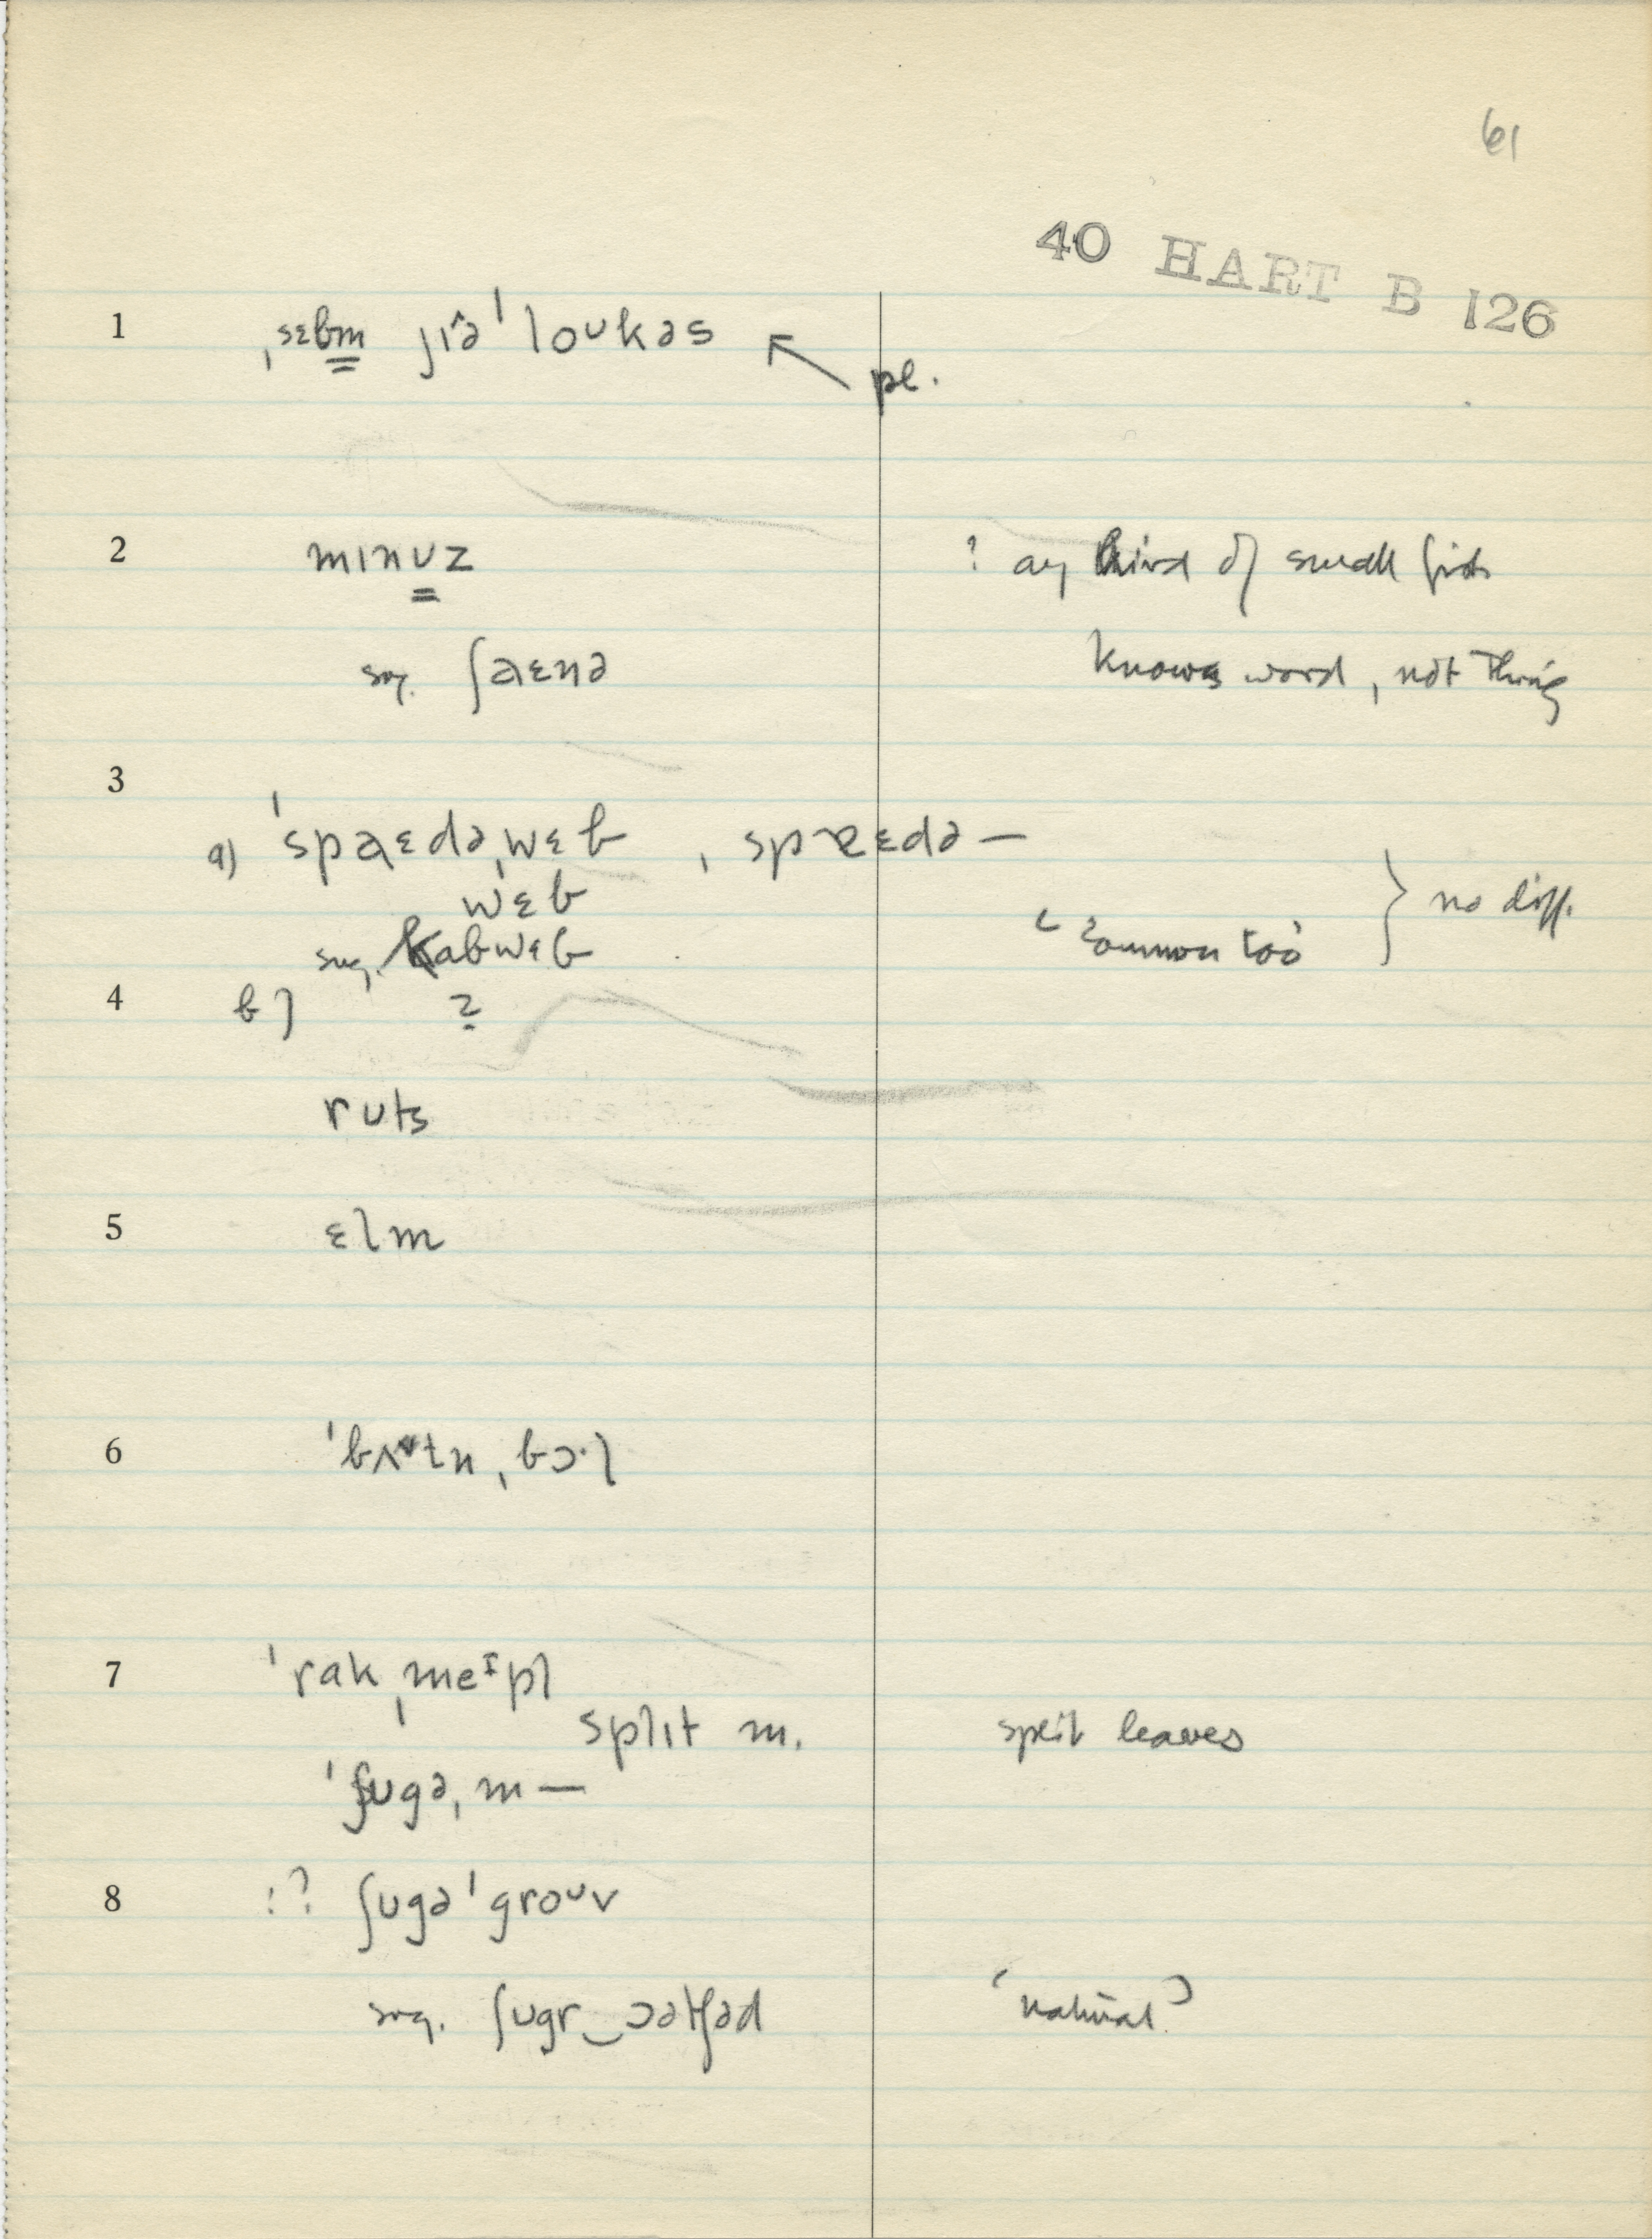 61
40 HART B 126
1 ˌsɛbm̳ jɪ^ə ˈloʊkəs ↖ pl.
2 mɪnʊ̳z ? any kind of small fish
sug. ʃaɛnə knows word, not thing
3
a) ˈspaɛdəˌwɛb , spɐɛdə—
wɛb
sug. kabwɛb ‹ common too › } no diff.
4 b) ?
ruts
5 ɛlm
6 ˈbʌtnˌbɔ·l
7 ˈrakˌmeᶦpl
split m. split leaves
ˈʃʊgəˌm—
8 !? ʃʊgə ˈgroᶷv
sug. ʃʊgr‿ɔətʃəd ‘natural’